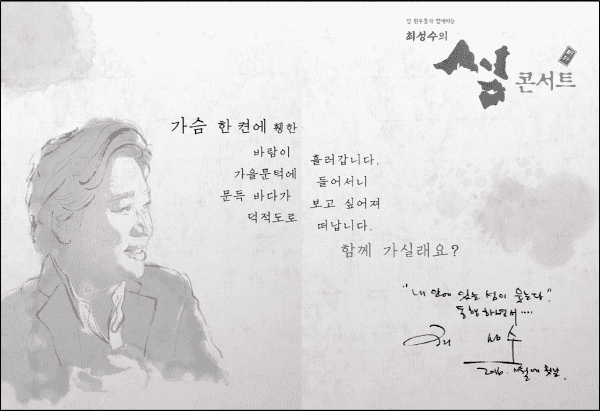 최성수의
섬
콘서트
가슴 한 켠에 휑한
바람이 흘러갑니다.
가을문턱에 들어서니
문득 바다가 보고 싶어져
덕적도로 떠납니다.
함께 가실래요?
"내 안에 있는 섬이 웃는다"
동행하면서....
최 성 수
2016.